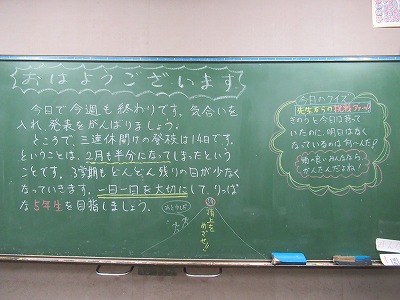 おはようございます
今日で今週も終わりです。気合いを
入れ、発表をがんばりましょう。
ところで、三連休開けの登校は14日です。
ということは、2月も半分になってしまったという
ことです。3学期もどんどん残りの日が少なく
なっていきます。一日一日を大切にして、りっぱ
な5年生を目指しましょう。
頂上を
めざせ!!
今日のクイズ
先生からの
きのうと今日はあって
いたのに、明日はなく
なっているのは何〜んだ!
頭の良いみんななら、
かんたんだよね!